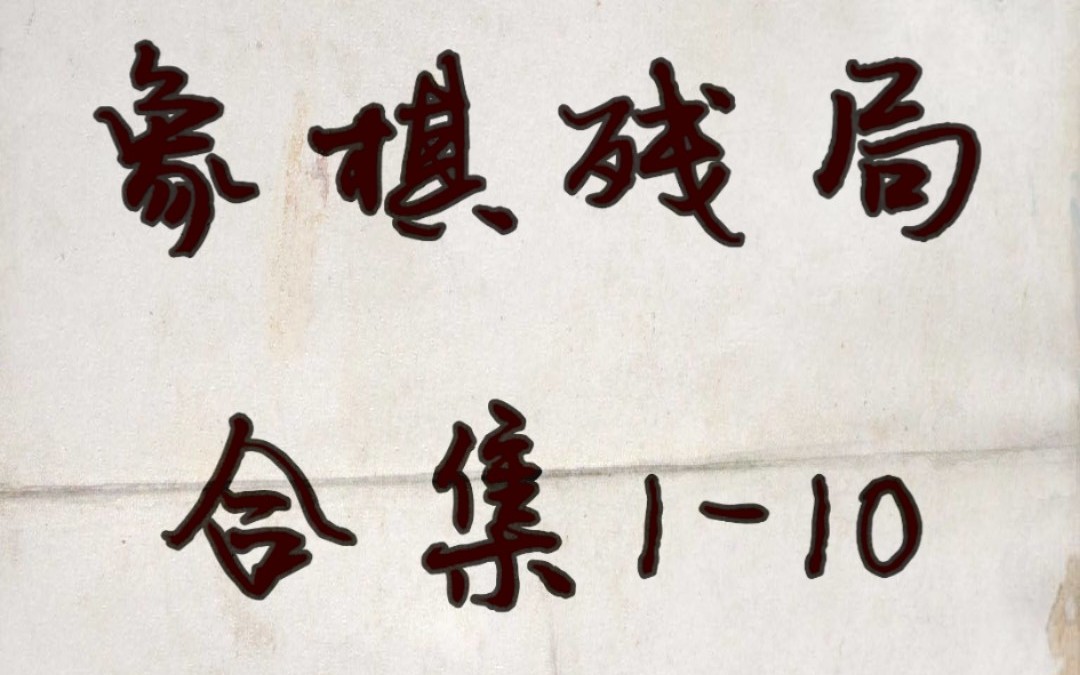 象棋残局
合集1-10